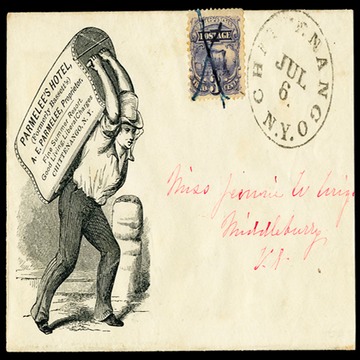 PARMELEE'S HOTEL,
(Formerly Bassett's)
A. E. PARMELEE, Proprietor.
Fine Summer Resort.
Good Living, Liberal Charges
CHITTENANGO, N.Y.
POSTAGE
CHITTENANGO
JUL
6
N.Y.
Miss Jennie W
Middlebury
Vt.